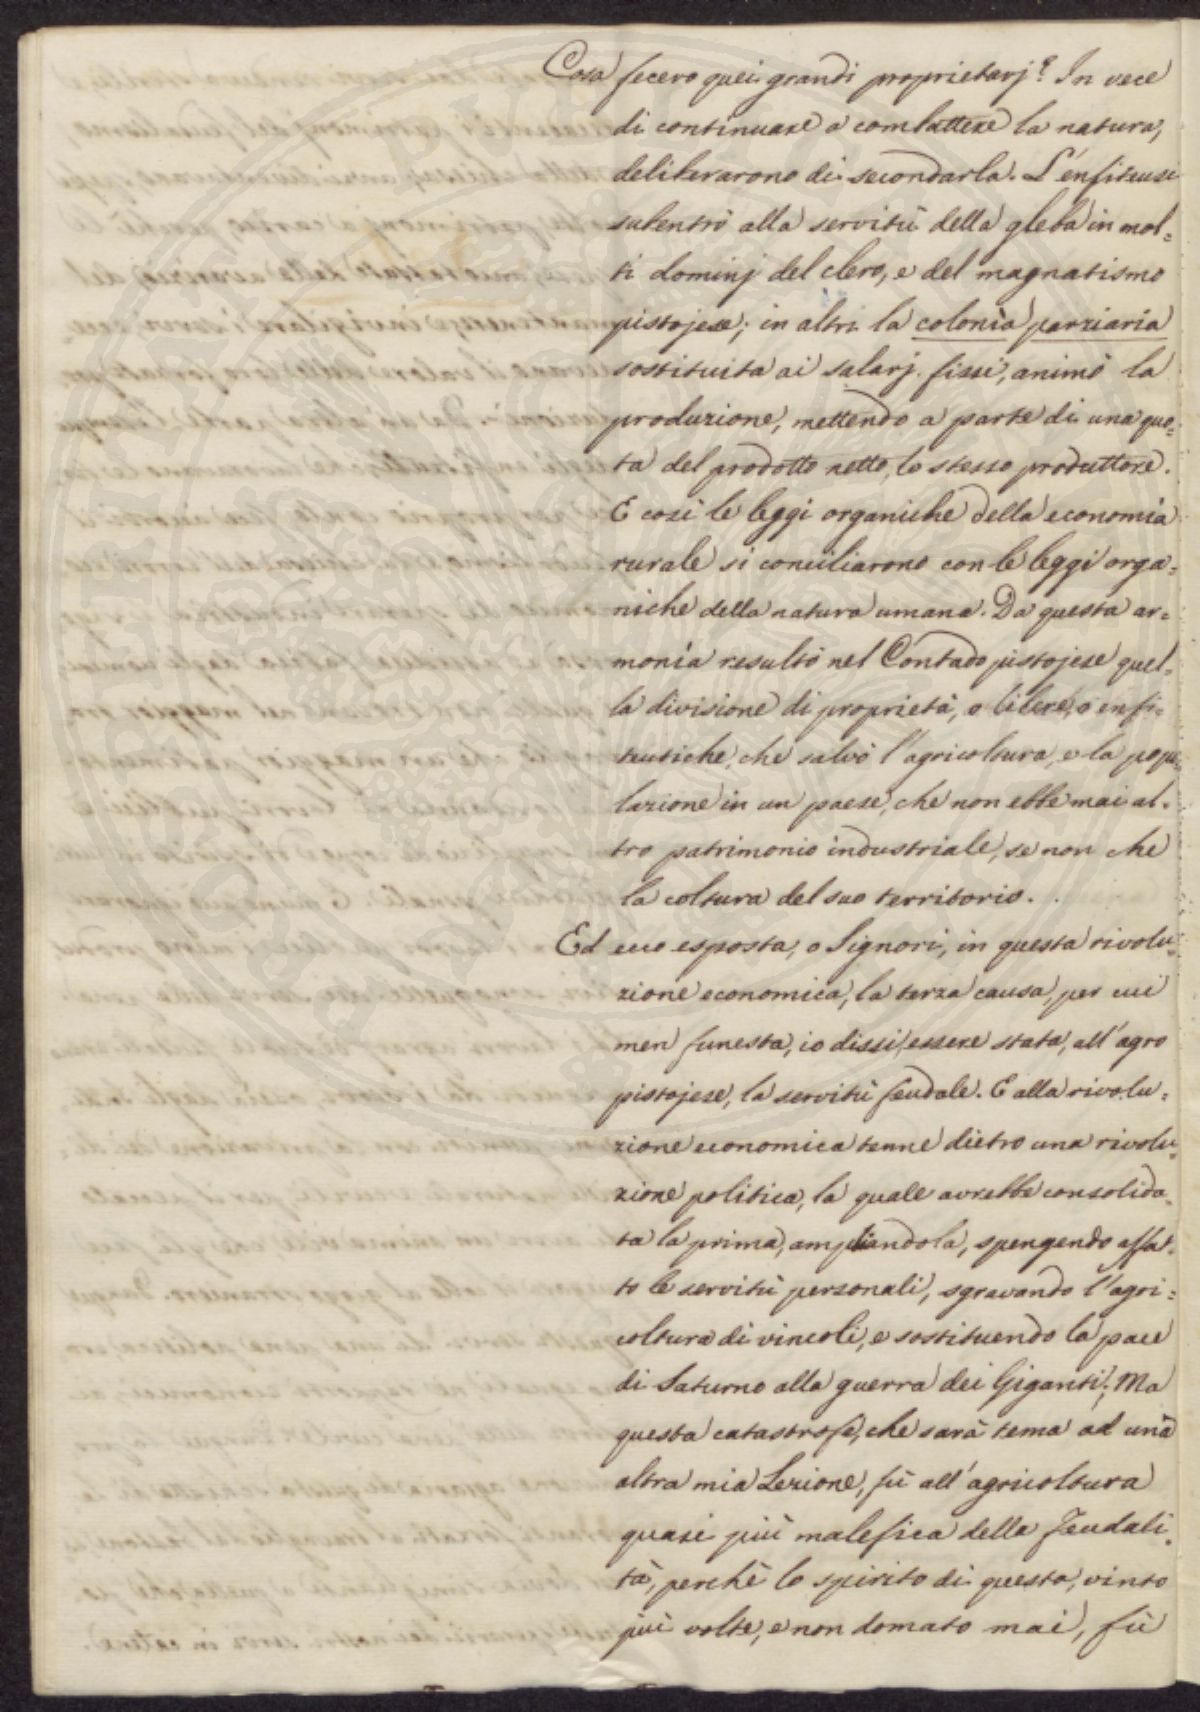 Cosa fecero quei grandi proprietarj? In vece
di continuare a combattere la natura,
deliberarono di secondarla. L'enfiteusi
subentrò alla servitù della gleba in mol=
ti dominj del clero, e del magnatismo
pistojese; in altri la colonìa parziaria
sostituita ai salarj fissi, animò la
produzione, mettendo a parte di una quo=
ta del prodotto netto, lo stesso produttore.
E così le leggi organiche della economia
rurale si conciliarono con le leggi orga=
niche della natura umana. Da questa ar=
monìa resultò nel Contado pistojese quel=
la divisione di proprietà, o libere, o enfi=
teutiche, che salvò l'agricoltura, e la popo=
lazione in un paese, che non ebbe mai al=
tro patrimonio industriale, se non che
la coltura del suo territorio.
Ed ecco esposta, o Signori, in questa rivolu=
zione economica, la terza causa, per cui
men funesta, io dissi, essere stata, all'agro
pistojese, la servitù feudale. E alla rivolu=
zione economica tenne dietro una rivolu=
zione politica, la quale avrebbe consolida=
ta la prima, ampliandola, spengendo affat=
to le servitù personali, sgravando l'agri=
coltura di vincoli, e sostituendo la pace
di Saturno alla guerra dei Giganti; Ma
questa catastrofe, che sarà tema ad una
altra mia Lezione, fù all'agricoltura
quasi più malefica della Feudali=
tà, perchè lo spirito di questa, vinto
più volte, e non domato mai, fù